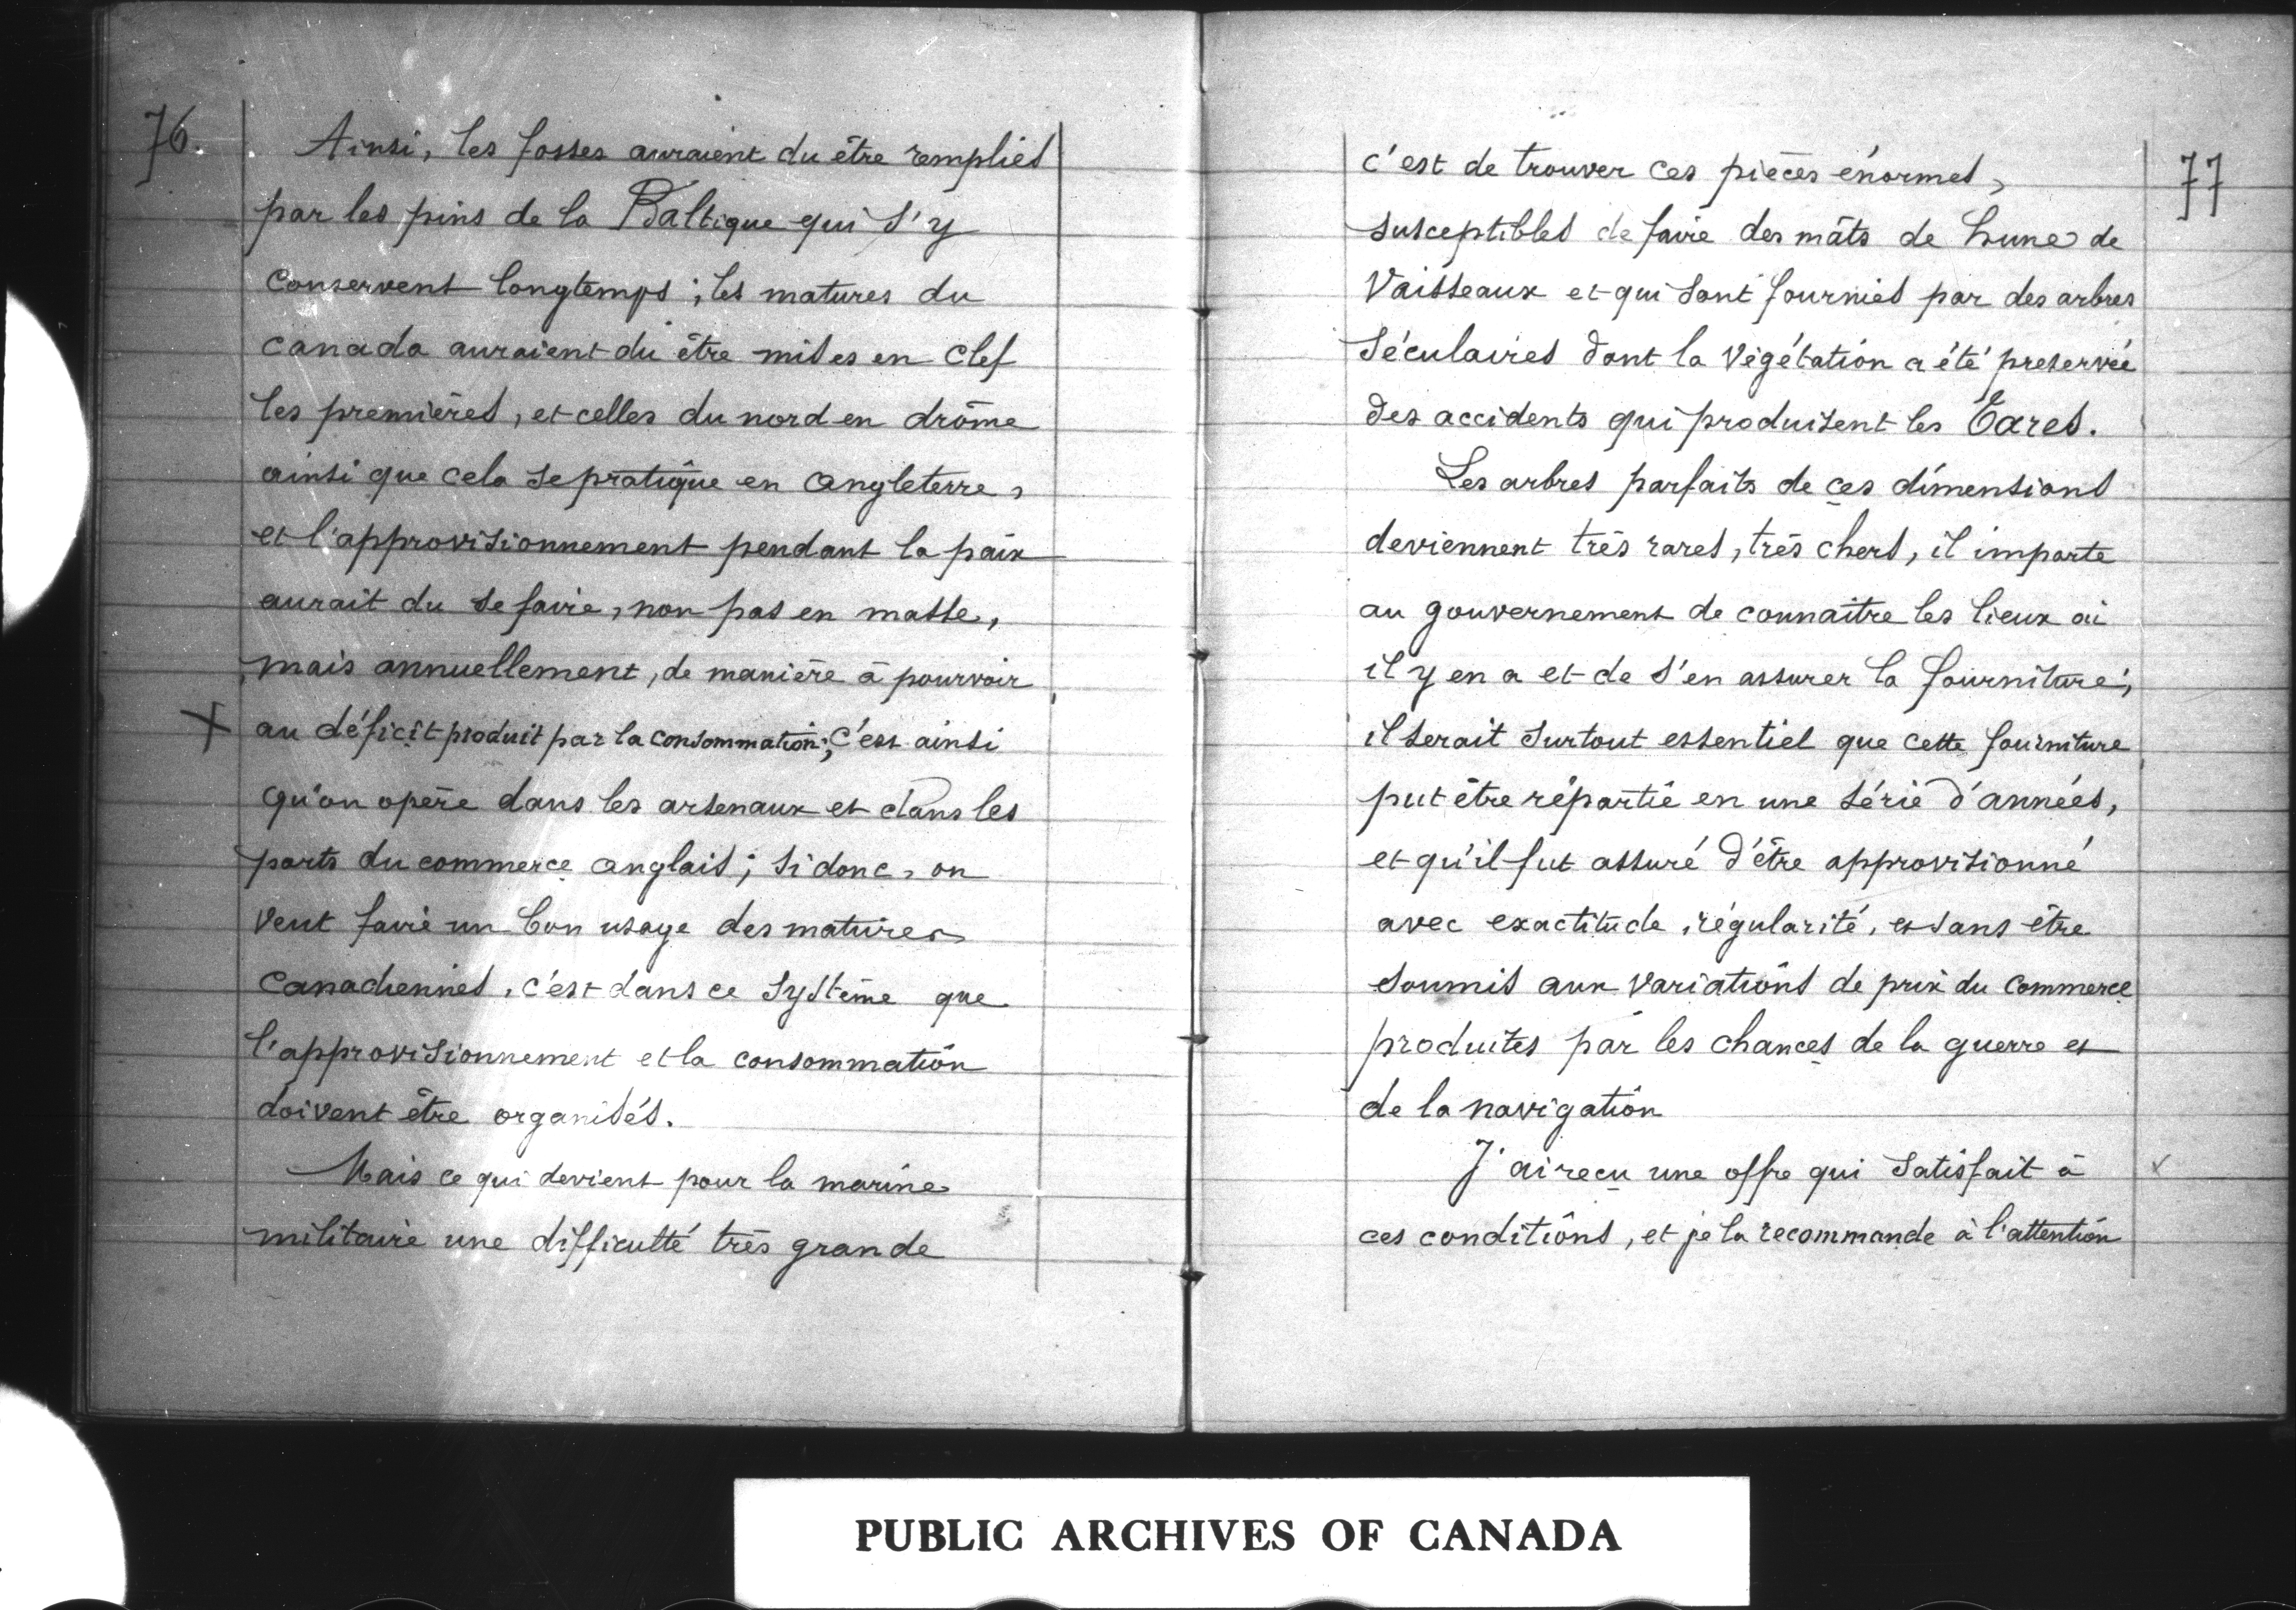 76.
Ainsi, les fosses auraient du être remplies
par les pins de la Baltique qui s'y
conservent longtemps ; les matures du
canada auraient du être mises en clef
les premières, et celles du nord en drôme
ainsi que cela se pratique en Angleterre,
et l'approvisionnement pendant la paix
aurait du se faire, non pas en masse,
mais annuellement, de manière à pourvoir
X au déficit produit par la consommation; c'est ainsi
qu'on opère dans les arsenaux et dans les
ports du commerce anglais ; si donc, on
veut faire un bon usage des matures
canadiennes, c'est dans ce système que
l'approvisionnement et la consommation
doivent être organisés.
Mais ce qui devient pour la marine
militaire une difficulté très grande
77
c'est de trouver ces pièces énormes,
susceptibles de faire des mâts de hune de
Vaisseaux et qui sont fournies par des arbres
séculaires dont la végétation a été preservée
des accidents qui produisent les tares.
Les arbres parfaits de ces dimensions
deviennent très rares, très chers, il importe
au gouvernement de connaitre les lieux où
il y en a et de s'en assurer la fourniture ;
il serait surtout essentiel que cette fourniture
put être répartie en une série d'années,
et qu'il fut assuré d'être approvisionné
avec exactitude, régularité, et sans être
soumis aux variations de prix du commerce
produites par les chances de la guerre et
de la navigation
J'ai reçu une offre qui satisfait à x
ces conditions, et je la recommande à l'attention
PUBLIC ARCHIVES OF CANADA